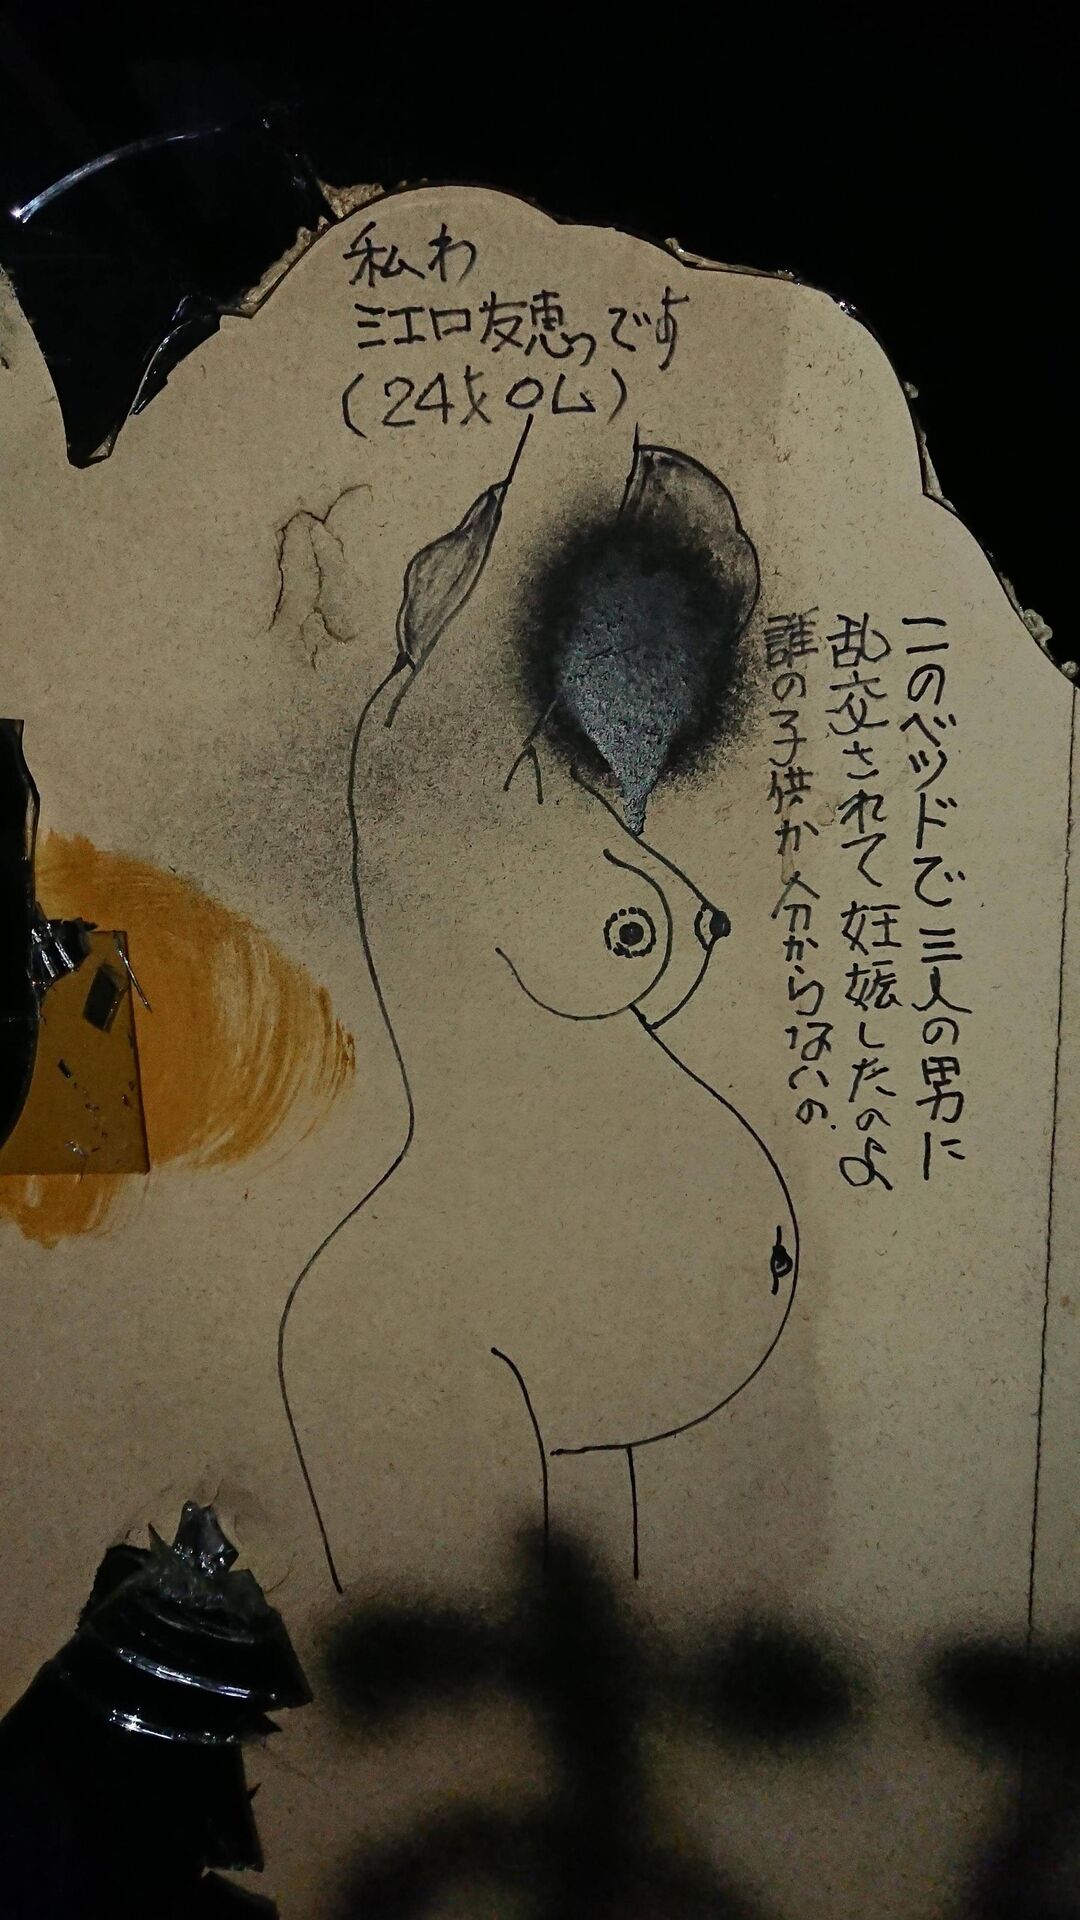 私わ
三工口友恵っです
(24才OL)
このベッドで三人の男に
乱交されて妊娠したのよ
誰の子供か分からないの